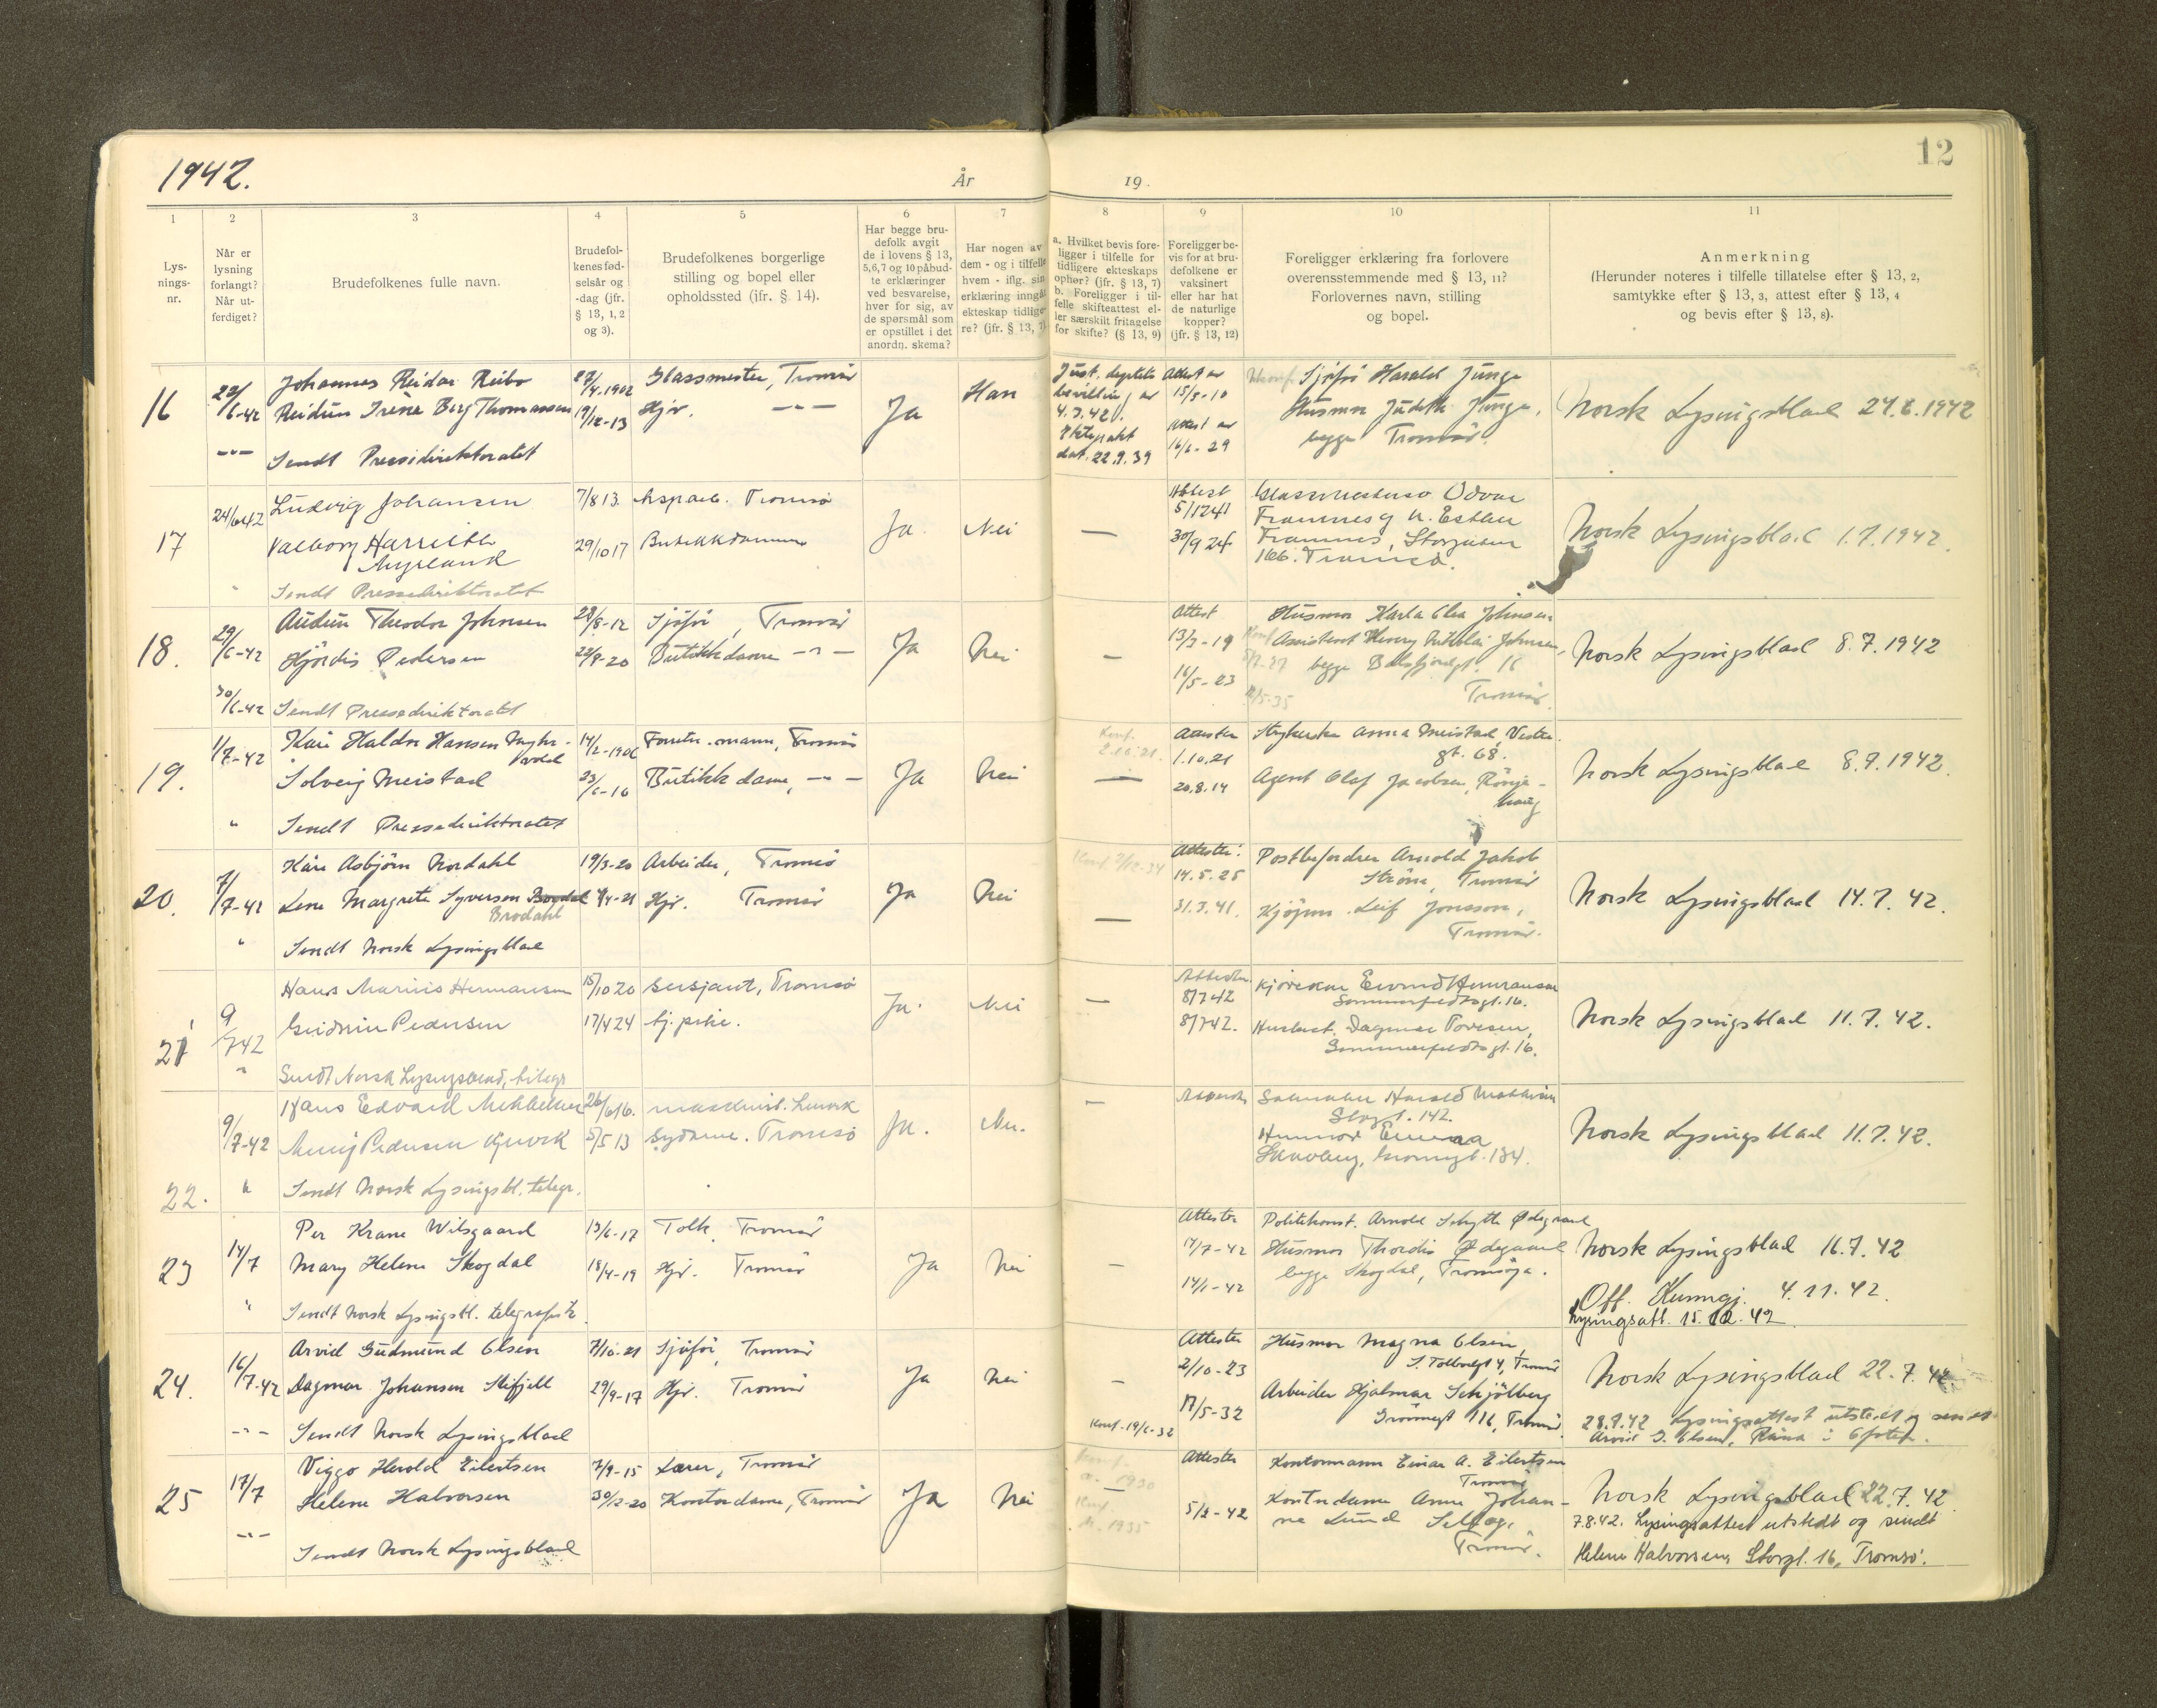 1942.
År
19 .
12
1
Lys-
nings-
nr.
2
Når er
lysning
forlangt?
Når ut-
ferdiget?
3
Brudefolkenes fulle navn.
4
Brudefol-
kenes fød-
selsår og
-dag (jfr.
§ 13, 1, 2
og 3).
5
Brudefolkenes borgerlige
stilling og bopel eller
opholdssted (jfr. § 14).
6
Har begge bru-
defolk avgit
de i lovens § 13,
5,6,7 og 10 påbud-
te erklæringer
ved besvarelse,
hver for sig, av
de spørsmål som
er opstillet i det
anordn. skema?
7
Har nogen av
dem - og i tilfelle
hvem - iflg. sin
erklæring inngåt
ekteskap tidlige-
re? (jfr. § 13, 7)
8
a. Hvilket bevis fore-
ligger i tilfelle for
tidligere ekteskaps
ophør? (jfr. § 13, 7)
b. Foreligger i til-
felle skifteattest el-
ler særskilt fritagelse
for skifte? (§ 13, 9)
9
Foreligger be-
vis for at bru-
defolkene er
vaksinert
eller har hat
de naturlige
kopper?
(jfr. § 13, 12)
10
Foreligger erklæring fra forlovere
overensstemmende med § 13, 11?
Forlovernes navn, stilling
og bopel.
11
Anmerkning
(Herunder noteres i tilfelle tillatelse efter § 13, 2,
samtykke efter § 13, 3, attest efter § 13, 4
og bevis efter § 13, 8).
16
/6-42
Johannes Reidar Reibo
Reidun Irene Berg Thomassen
Sendt Pressedirektoratet
/4.1902
19/12-13
Glassmester, Tromsö
Hjv. -"-
Ja
Han
Just. deptets
bevilling av
4.3.42.
Ektepakt
dat. 22.9.39
Attest av
15/8-10
Attest av
16/6-29
Sjåför Harald Junge
Husmor Judith Junge,
begge Tromsö.
Norsk Lysingsblad 24.6.1942
17
24/6 42
Ludvig Johansen
Valborg Harriette
Myrland
Sendt Pressedirektoratet
7/8 13
29/10 17
Tromsö
Butikkdame
Ja.
Nei
—
Attest
5/1 24
30/9 24
Glassmester Odvar
Framnes og h. Esther
Framnes, Storgaten
Tromsö.
Norsk Lysingsblad 1.7.1942.
18.
29/6-42
30/6-42
Audun Theodor Johnsen
Hjördis Pedersen
Sendt Pressedirektoratet
28/8-12
24/8-20
Sjåför, Tromsö
Butikkdame -"-
Ja
Nei
—
Attest
13/7-19
16/5-23
Husmor Karla Olea Johnsen
Assistent Henry Nikolai Johnsen,
begge Balsfjordgt. 16
Tromsö
Norsk Lysingsblad 8.7.1942
19.
1/7-42
Kåre Haldor Hansen
Solveig Meistad
"
Sendt Pressedirektoratet
14/2-1906
23/6-16
Forretn.mann, Tromsö
Butikkdame, -"-
Ja
Nei
Konf.
—
Attester
1.10.21
20.8.14
Strykerske Anna Meistad Vestre-
gt. 68.
Agent Olaf Jacobsen,
Norsk Lysingsblad 8.7.1942.
20.
7/7-42
"
Kåre Asbjörn Nordahl
Lene Margrete Syversen
Brodahl
Sendt Norsk Lysingsblad
19/3-20
Arbeider, Tromsö
Hjv. Tromsö
Ja
Nei
—
Attester:
14.5.25
31.3.41.
Postbefordrer Arnold Jakob
Ström, Tromsö
Leif Jonsson,
Tromsö.
Norsk Lysingsblad 14.7.42.
21
9/7 42
"
Hans Marius Hermansen
Gudrun Pedersen
Sendt Norsk Lysingsblad, telegr.
15/10 20
17/4 24
Sersjant, Tromsö
Hj. pike.
Ja.
Nei
—
Attester
8/7 42
8/7 42.
Eivind Hermansen
Sommerfeldtsgt. 16.
Dagmar
Sommerfeldtsgt. 16.
Norsk Lysingsblad 11.7.42.
22.
9/7-42
"
Hans Edvard
Pedersen
Sendt Norsk Lysingsbl. telegr.
26/6 16.
5/5 13
Sydame. Tromsö
Ja.
Nei.
—
Attester
Harald
Storgt. 142.
Norsk Lysingsblad 11.7.42.
23
14/7
"
Per Krane Wilsgaard
Mary Helene Skogdal
Sendt Norsk Lysingsbl. telegrafisk
13/6-17
18/4-19
Tolk, Tromsö
Hjv. Tromsö
Ja
Nei
—
Attester
14/7-42
14/1-42
Politikonst. Arnold Schytte Ødegaard
Husmor Thordis Ødegaard
begge Skogdal, Tromsöya.
Norsk Lysingsblad 16.7.42
Off. Kunngj. 4.11.42.
Lysingsatt. 15.12.42.
24.
16/7-42
-"-
Arvid Gudmund Olsen
Dagmar Johansen Slifjell
Sendt Norsk Lysingsblad
7/10-21
29/9-17
Sjåför, Tromsö
Hjv. Tromsö
Ja
Nei
—
Konf. 19/6-32
Attester
2/10-23
17/5-32
Husmor Magna Olsen,
S. Tolbodgt 4, Tromsö
Arbeider Hjalmar Schjölberg
Grönnegt 116, Tromsö
Norsk Lysingsblad 22.7.42
Lysingsattest utstedt og sendt
Arvid G. Olsen,
25
17/7
-"-
Viggo Herold Eilertsen
Helene Halvorsen
Sendt Norsk Lysingsblad
7/9-15
30/12-20
Lærer, Tromsö
Kontordame, Tromsö
Ja
Nei
Konf.
1930
Konf.
1935
Attester
5/2-42
Kontormann Einar A. Eilertsen
Tromsö
Kontordame Anne Johan-
ne Lund
Tromsö.
Norsk Lysingsblad 22.7.42
7.8.42. Lysingsattest utstedt og sendt
Helene Halvorsen, Storgt. 16, Tromsö.